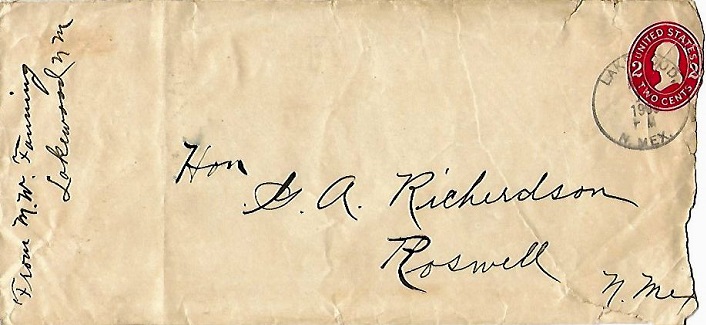 From M.W. Fanning
Lakewood N M
UNITED STATES
2 2
TWO CENTS
N. MEX.
Hon
G. A. Richerdson
Roswell
N. Mex